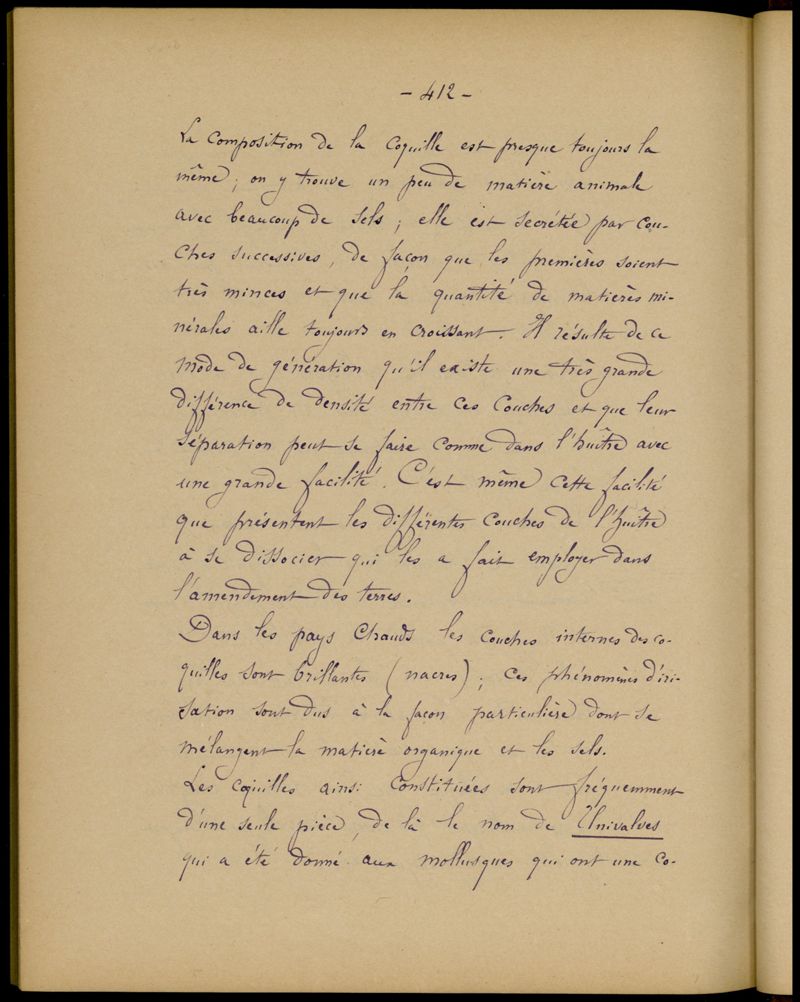 - 412 -
La composition de la coquille est presque toujours la
même ; on y trouve un peu de matière animale
avec beaucoup de sels ; elle est secrétée par cou-
ches successives, de façon que les premières soient
très minces et que la quantité de matières mi-
nérales aille toujours en croissant. Il résulte de ce
mode de génération qu'il existe une très grande
différence de densité entre ces couches et que leur
séparation peut se faire comme dans l'huître avec
une grande facilité. C'est même cette facilité
que présentent les différentes couches de l'huître
à se dissocier qui les a fait employer dans
l'amendement des terres.
Dans les pays chauds les couches internes des co-
quilles sont brillantes (nacres) ; ces phénomènes d'iri-
sation sont dus à la façon particulière dont se
mélangent la matière organique et les sels.
Les coquilles ainsi constituées sont fréquemment
d'une seule pièce, de là le nom de Univalves
qui a été donné aux mollusques qui ont une co-